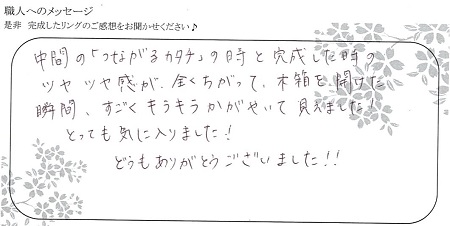 職人へのメッセージ
是非 完成したリングのご感想をお聞かせください♪
中間の「つながるカタチ」の時と完成した時の
ツヤツヤ感が、全くちがって、木箱を開けた
瞬間、すごくキラキラかがやいて見えました!
とっても気に入りました!
どうもありがとうございました!!